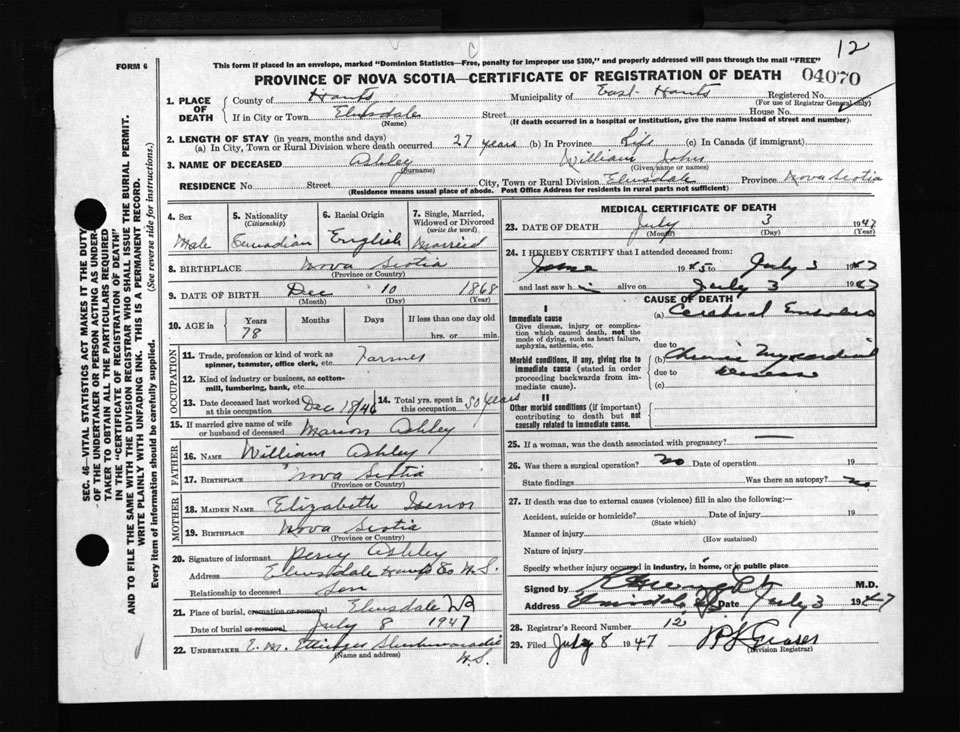 12
FORM 6
This form if placed in an envelope, marked "Dominion Statistics—Free, penalty for improper use $300," and properly addressed will pass through the mail "FREE"
PROVINCE OF NOVA SCOTIA—CERTIFICATE OF REGISTRATION OF DEATH
04070
1. PLACE OF DEATH
County of Hants Municipality of East Hants Registered No.
(For use of Registrar General only)
If in City or Town Elmsdale Street House No.
(Name) (If death occurred in a hospital or institution, give the name instead of street and number)
2. LENGTH OF STAY (in years, months and days)
(a) In City, Town or Rural Division where death occurred 27 years (b) In Province Life (c) In Canada (if immigrant)
3. NAME OF DECEASED Ashley William John
(Surname) (Given name or names)
RESIDENCE No. Street City, Town or Rural Division Elmsdale Province Nova Scotia
(Residence means usual place of abode. Post Office Address for residents in rural parts not sufficient)
4. Sex Male
5. Nationality (Citizenship) Canadian
6. Racial Origin English
7. Single, Married, Widowed or Divorced (write the word) Married
8. BIRTHPLACE Nova Scotia
(Province or Country)
9. DATE OF BIRTH Dec 10 1868
(Month) (Day) (Year)
10. AGE in Years Months Days If less than one day old
78 hrs. or min.
OCCUPATION
11. Trade, profession or kind of work as spinner, teamster, office clerk, etc. Farmer
12. Kind of industry or business, as cotton-mill, lumbering, bank, etc.
13. Date deceased last worked at this occupation Dec 18/46
14. Total yrs. spent in this occupation 50 years
15. If married give name of wife or husband of deceased Marion Ashley
FATHER
16. NAME William Ashley
17. BIRTHPLACE Nova Scotia
(Province or Country)
MOTHER
18. MAIDEN NAME Elizabeth Isenor
19. BIRTHPLACE Nova Scotia
(Province or Country)
20. Signature of informant Percy Ashley
Address Elmsdale Hants Co N.S.
Relationship to deceased Son
21. Place of burial, cremation or removal Elmsdale
Date of burial or removal July 8 1947
22. UNDERTAKER E. M. Ettinger Shubenacadie
(Name and address) N.S.
MEDICAL CERTIFICATE OF DEATH
23. DATE OF DEATH July 3 1947
(Month) (Day) (Year)
24. I HEREBY CERTIFY that I attended deceased from:
June 1945 to July 3 1947
and last saw h i alive on July 3 1947
CAUSE OF DEATH
I
Immediate cause
Give disease, injury or complication which caused death, not the mode of dying, such as heart failure, asphyxia, asthenia, etc.
(a) Cerebral Embolus
due to
Morbid conditions, if any, giving rise to immediate cause (stated in order proceeding backwards from immediate cause).
(b) Chronic Myocardial
due to disease
(c)
II
Other morbid conditions (if important) contributing to death but not causally related to immediate cause.
25. If a woman, was the death associated with pregnancy? —
26. Was there a surgical operation? no Date of operation 19
State findings Was there an autopsy? no
27. If death was due to external causes (violence) fill in also the following:—
Accident, suicide or homicide? Date of injury 19
(State which)
Manner of injury
(How sustained)
Nature of injury
Specify whether injury occurred in industry, in home, or in public place
Signed by M.D.
Address Date July 3 1947
28. Registrar's Record Number 12
29. Filed July 8 1947
(Division Registrar)
SEC. 46—VITAL STATISTICS ACT MAKES IT THE DUTY OF THE UNDERTAKER OR PERSON ACTING AS UNDERTAKER TO OBTAIN ALL THE PARTICULARS REQUIRED IN THE "CERTIFICATE OF REGISTRATION OF DEATH" AND TO FILE THE SAME WITH THE DIVISION REGISTRAR WHO SHALL ISSUE THE BURIAL PERMIT.
WRITE PLAINLY WITH UNFADING INK. THIS IS A PERMANENT RECORD.
Every item of information should be carefully supplied. (See reverse side for instructions.)